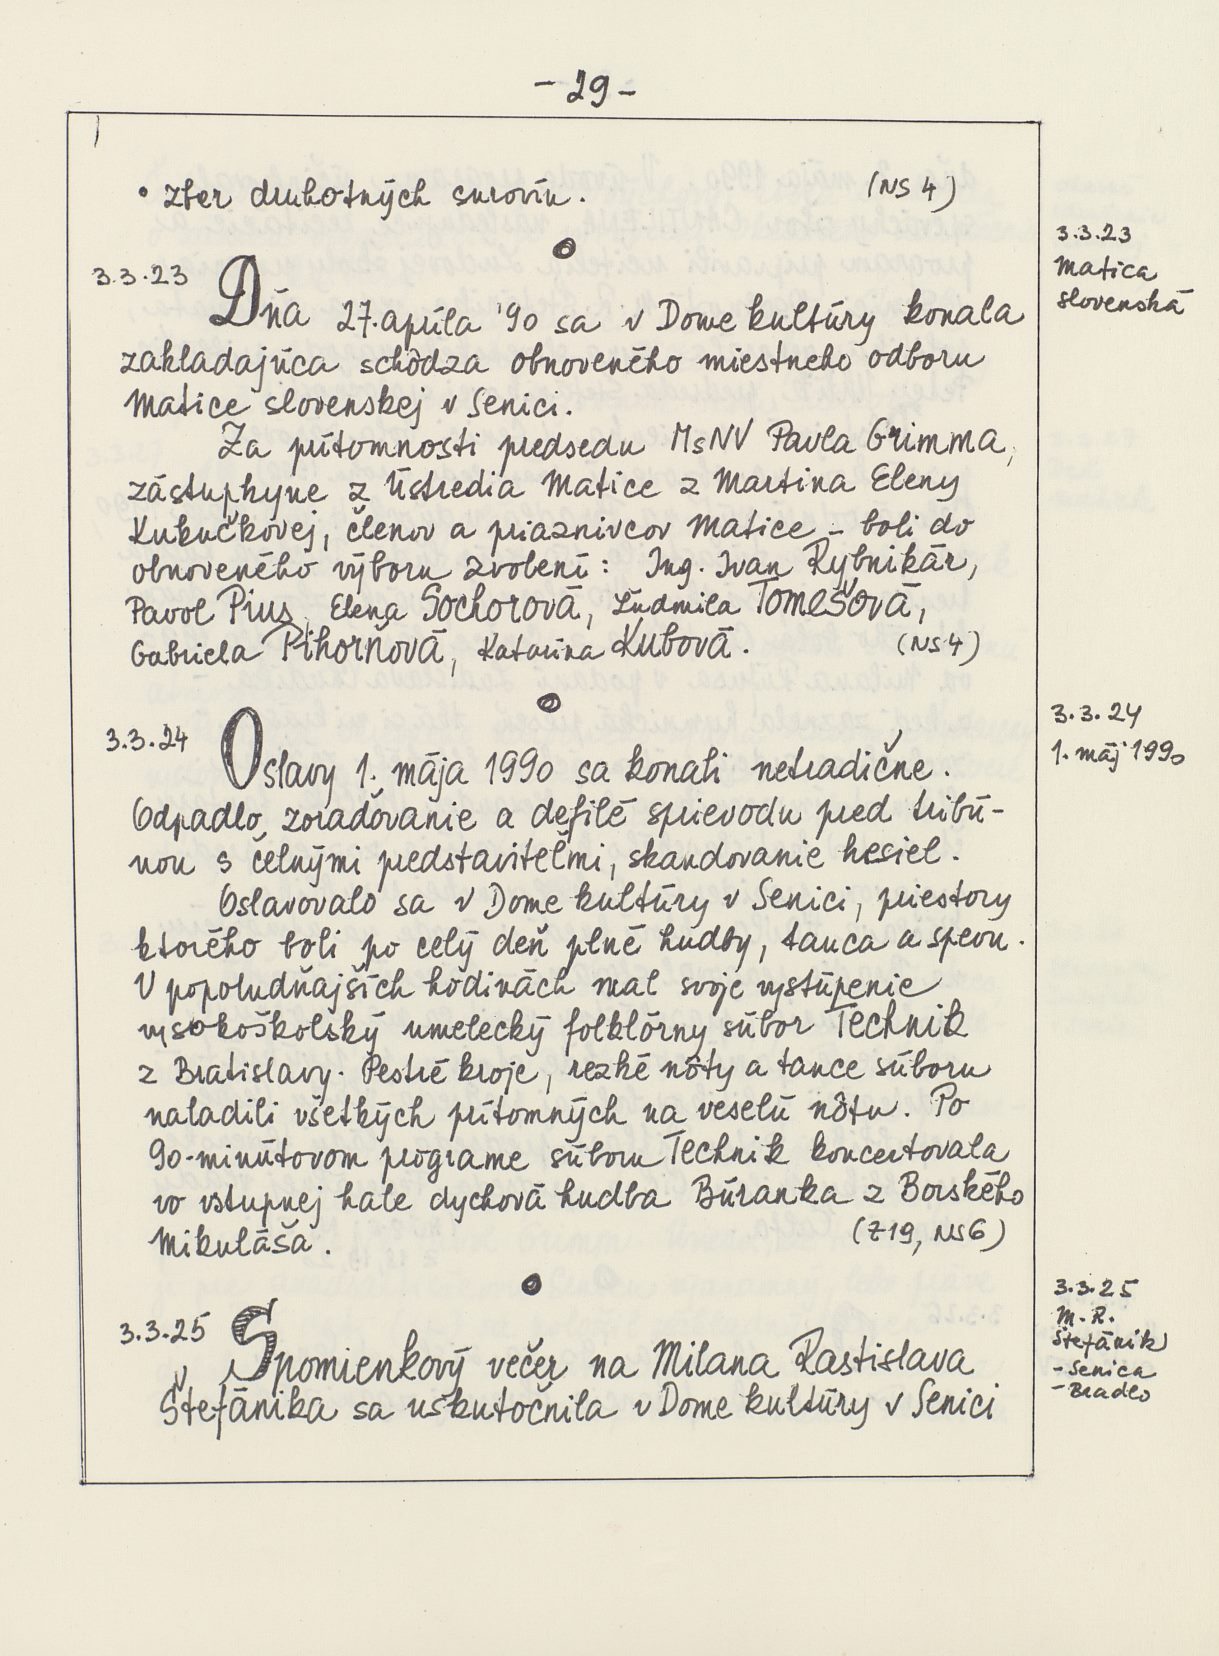 - 29 -
• zber druhotných surovín. (NS 4)
3.3.23
Matica
slovenská
3.3.23 Dňa 27. apríla '90 sa v Dome kultúry konala
zakladajúca schôdza obnoveného miestneho odboru
Matice slovenskej v Senici.
Za prítomnosti predsedu MsNV Pavla Grimma,
zástupkyne z Ústredia Matice z Martina Eleny
Kukučkovej, členov a priaznivcov Matice - boli do
obnoveného výboru zvolení: Ing. Ivan Rybnikár,
Pavol Pius, Elena Sochorová, Ľudmila Tomešová,
Gabriela Pihorňová, Katarína Kubová. (NS4)
3.3.24
1. máj 1990
3.3.24 Oslavy 1. mája 1990 sa konali netradične.
Odpadlo zoraďovanie a defilé sprievodu pred tribú-
nou s čelnými predstaviteľmi, skandovanie hesiel.
Oslavovalo sa v Dome kultúry v Senici, priestory
ktorého boli po celý deň plné hudby, tanca a spevu.
V popoludňajších hodinách mal svoje vystúpenie
vysokoškolský umelecký folklórny súbor Technik
z Bratislavy. Pestré kroje, rezké nôty a tance súboru
naladili všetkých prítomných na veselú nôtu. Po
90-minútovom programe súboru Technik koncertovala
vo vstupnej hale dychová hudba Búranka z Borského
Mikuláša. (Z19, NS6)
3.3.25
M. R.
Štefánik
- Senica
- Bradlo
3.3.25 Spomienkový večer na Milana Rastislava
Štefánika sa uskutočnila v Dome kultúry v Senici